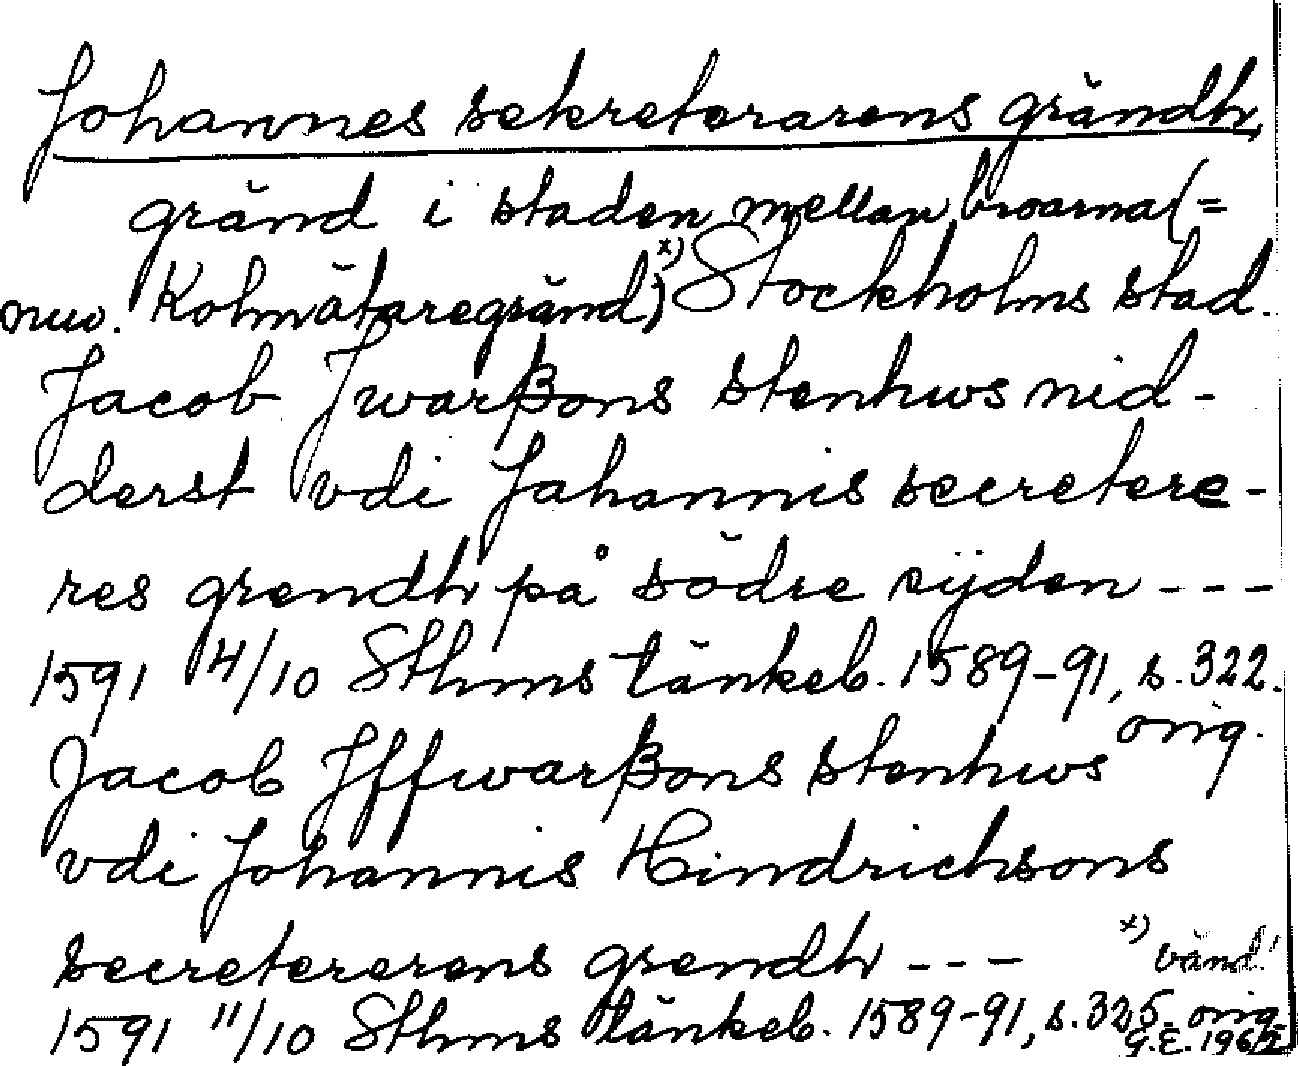 Johannes sekreterarens grändh,
gränd i staden mellan broarna (=
nuv. Kolmätaregränd) x) Stockholms stad.
Jacob Jwarßons stenhws nid-
derst vdi Johannis secretere-
res grendh på södre sijden ---
1591 4/10 Sthms tänkeb. 1589-91, s. 322.
orig.
Jacob Jffwarßons stenhws
vdi Johannis Hindrichsons
secretererens grendh ---
x) vänd!
1591 11/10 Sthms tänkeb. 1589-91, s. 325. orig.
G.E. 1962